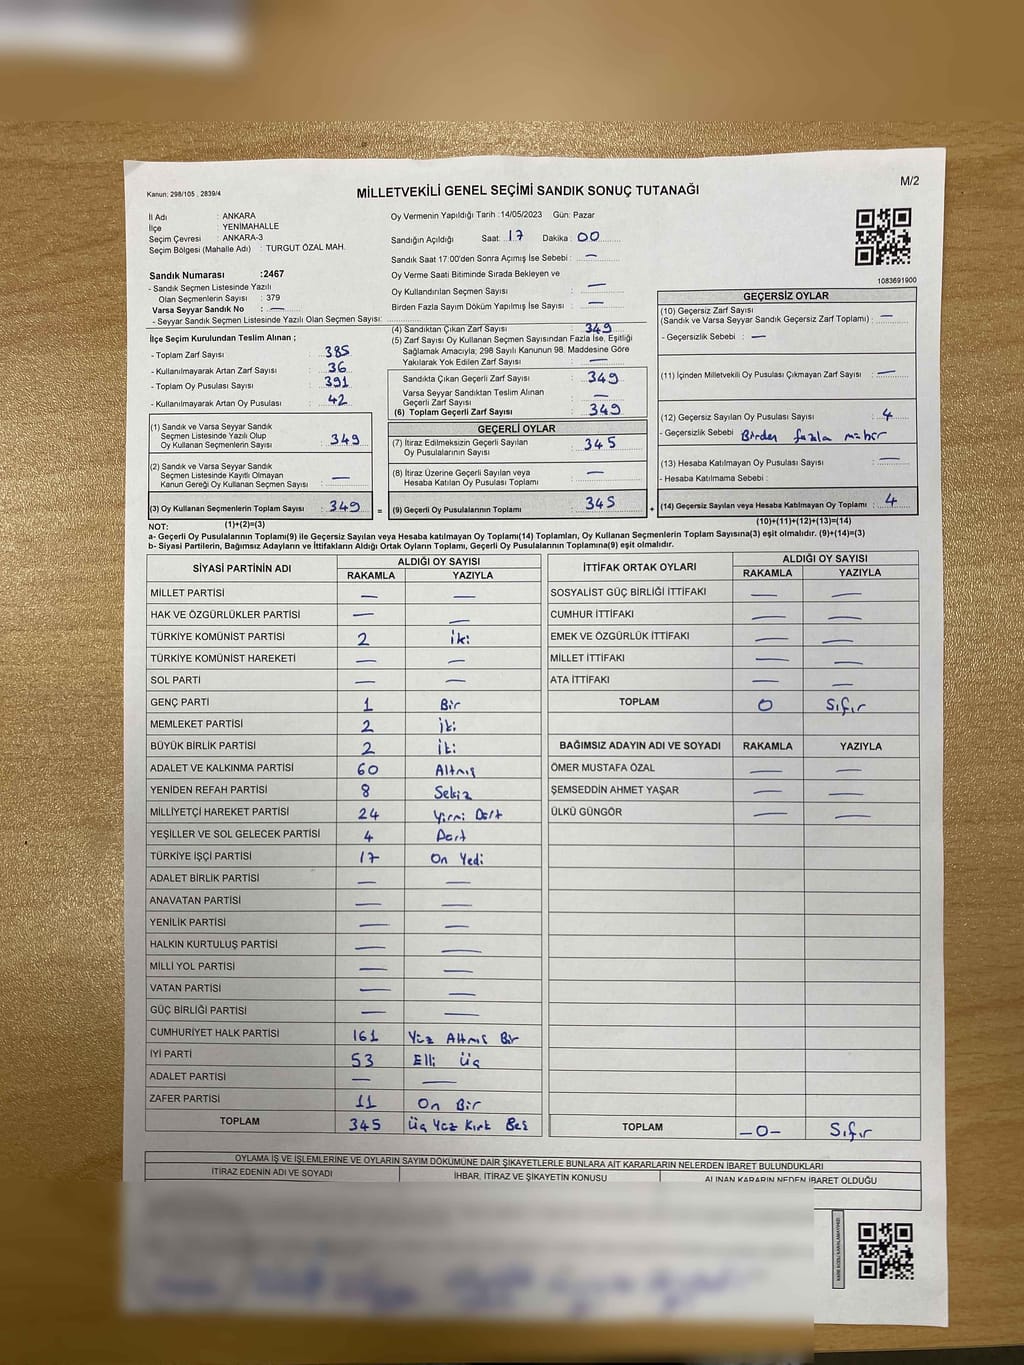 Kanun: 298/105 , 2839/4
MİLLETVEKİLİ GENEL SEÇİMİ SANDIK SONUÇ TUTANAĞI
M/2
İl Adı : ANKARA
İlçe : YENİMAHALLE
Seçim Çevresi : ANKARA-3
Seçim Bölgesi (Mahalle Adı) : TURGUT ÖZAL MAH.
Sandık Numarası :2467
- Sandık Seçmen Listesinde Yazılı
Olan Seçmenlerin Sayısı : 379
Varsa Seyyar Sandık No : —
- Seyyar Sandık Seçmen Listesinde Yazılı Olan Seçmen Sayısı:
Oy Vermenin Yapıldığı Tarih :14/05/2023 Gün: Pazar
Sandığın Açıldığı Saat: 17 Dakika : 00
Sandık Saat 17:00'den Sonra Açımış İse Sebebi : —
Oy Verme Saati Bitiminde Sırada Bekleyen ve
Oy Kullandırılan Seçmen Sayısı : —
Birden Fazla Sayım Döküm Yapılmış İse Sayısı : —
1083691900
İlçe Seçim Kurulundan Teslim Alınan ;
- Toplam Zarf Sayısı : 385
- Kullanılmayarak Artan Zarf Sayısı : 36
- Toplam Oy Pusulası Sayısı : 391
- Kullanılmayarak Artan Oy Pusulası : 42
(1) Sandık ve Varsa Seyyar Sandık
Seçmen Listesinde Yazılı Olup
Oy Kullanan Seçmenlerin Sayısı : 349
(2) Sandık ve Varsa Seyyar Sandık
Seçmen Listesinde Kayıtlı Olmayan
Kanun Gereği Oy Kullanan Seçmen Sayısı : —
(3) Oy Kullanan Seçmenlerin Toplam Sayısı : 349
(4) Sandıktan Çıkan Zarf Sayısı : 349
(5) Zarf Sayısı Oy Kullanan Seçmen Sayısından Fazla İse, Eşitliği
Sağlamak Amacıyla; 298 Sayılı Kanunun 98. Maddesine Göre
Yakılarak Yok Edilen Zarf Sayısı : —
Sandıkta Çıkan Geçerli Zarf Sayısı : 349
Varsa Seyyar Sandıktan Teslim Alınan
Geçerli Zarf Sayısı : —
(6) Toplam Geçerli Zarf Sayısı : 349
GEÇERLİ OYLAR
(7) İtiraz Edilmeksizin Geçerli Sayılan
Oy Pusulalarının Sayısı : 345
(8) İtiraz Üzerine Geçerli Sayılan veya
Hesaba Katılan Oy Pusulası Toplamı : —
= (9) Geçerli Oy Pusulalarının Toplamı : 345
GEÇERSİZ OYLAR
(10) Geçersiz Zarf Sayısı
(Sandık ve Varsa Seyyar Sandık Geçersiz Zarf Toplamı) : —
- Geçersizlik Sebebi : —
(11) İçinden Milletvekili Oy Pusulası Çıkmayan Zarf Sayısı : —
(12) Geçersiz Sayılan Oy Pusulası Sayısı : 4
- Geçersizlik Sebebi Birden fazla mühür
(13) Hesaba Katılmayan Oy Pusulası Sayısı : —
- Hesaba Katılmama Sebebi :
+ (14) Geçersiz Sayılan veya Hesaba Katılmayan Oy Toplamı : 4
NOT: (1)+(2)=(3)
(10)+(11)+(12)+(13)=(14)
a- Geçerli Oy Pusulalarının Toplamı(9) ile Geçersiz Sayılan veya Hesaba katılmayan Oy Toplamı(14) Toplamları, Oy Kullanan Seçmenlerin Toplam Sayısına(3) eşit olmalıdır. (9)+(14)=(3)
b- Siyasi Partilerin, Bağımsız Adayların ve İttifakların Aldığı Ortak Oyların Toplamı, Geçerli Oy Pusulalarının Toplamına(9) eşit olmalıdır.
SİYASİ PARTİNİN ADI ALDIĞI OY SAYISI
RAKAMLA YAZIYLA
MİLLET PARTİSİ — —
HAK VE ÖZGÜRLÜKLER PARTİSİ — —
TÜRKİYE KOMÜNİST PARTİSİ 2 İki
TÜRKİYE KOMÜNİST HAREKETİ — —
SOL PARTİ — —
GENÇ PARTİ 1 Bir
MEMLEKET PARTİSİ 2 İki
BÜYÜK BİRLİK PARTİSİ 2 İki
ADALET VE KALKINMA PARTİSİ 60 Altmış
YENİDEN REFAH PARTİSİ 8 Sekiz
MİLLİYETÇİ HAREKET PARTİSİ 24 Yirmi Dört
YEŞİLLER VE SOL GELECEK PARTİSİ 4 Dört
TÜRKİYE İŞÇİ PARTİSİ 17 On Yedi
ADALET BİRLİK PARTİSİ — —
ANAVATAN PARTİSİ — —
YENİLİK PARTİSİ — —
HALKIN KURTULUŞ PARTİSİ — —
MİLLİ YOL PARTİSİ — —
VATAN PARTİSİ — —
GÜÇ BİRLİĞİ PARTİSİ — —
CUMHURİYET HALK PARTİSİ 161 Yüz Altmış Bir
İYİ PARTİ 53 Elli Üç
ADALET PARTİSİ — —
ZAFER PARTİSİ 11 On Bir
TOPLAM 345 Üç Yüz Kırk Beş
İTTİFAK ORTAK OYLARI ALDIĞI OY SAYISI
RAKAMLA YAZIYLA
SOSYALİST GÜÇ BİRLİĞİ İTTİFAKI — —
CUMHUR İTTİFAKI — —
EMEK VE ÖZGÜRLÜK İTTİFAKI — —
MİLLET İTTİFAKI — —
ATA İTTİFAKI — —
TOPLAM 0 Sıfır
BAĞIMSIZ ADAYIN ADI VE SOYADI RAKAMLA YAZIYLA
ÖMER MUSTAFA ÖZAL — —
ŞEMSEDDİN AHMET YAŞAR — —
ÜLKÜ GÜNGÖR — —
TOPLAM —0— Sıfır
OYLAMA İŞ VE İŞLEMLERİNE VE OYLARIN SAYIM DÖKÜMÜNE DAİR ŞİKAYETLERLE BUNLARA AİT KARARLARIN NELERDEN İBARET BULUNDUKLARI
İTİRAZ EDENİN ADI VE SOYADI İHBAR, İTİRAZ VE ŞİKAYETİN KONUSU ALINAN KARARIN NEDEN İBARET OLDUĞU